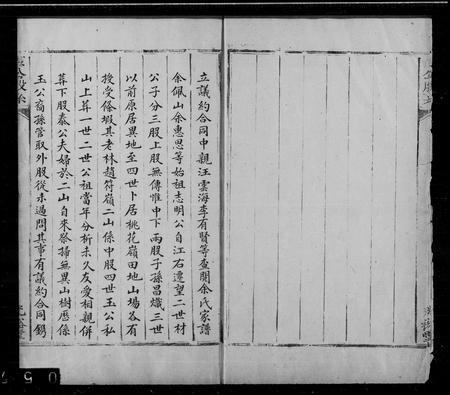 立議約合同中親汪雲海李有賢等查閱余氏家譜
余佩山余惠恩等始祖志明公自江右遷望二世材
公子分三股上股無傳惟中下兩股子孫昌熾三世
以前原居異地至四世卜居桃花嶺田地山場各有
授受條塅其老林趙符嶺二山係中股四世玉公私
山上葬一世二世公祖當年分析未久友愛相親併
葬下股泰公夫婦於二山自來祭掃無異山樹歷係
玉公裔孫管取外股從未過問其事有議約合同鐫